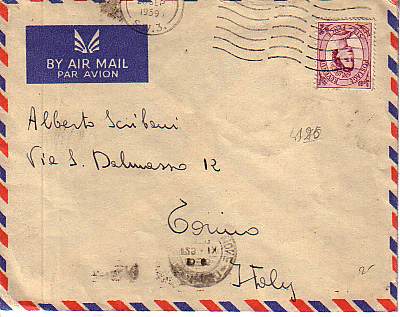 SEP
1959
S.W.3.
BY AIR MAIL
PAR AVION
Alberto Scribani
Via S. Dalmasso 12
Torino
Italy